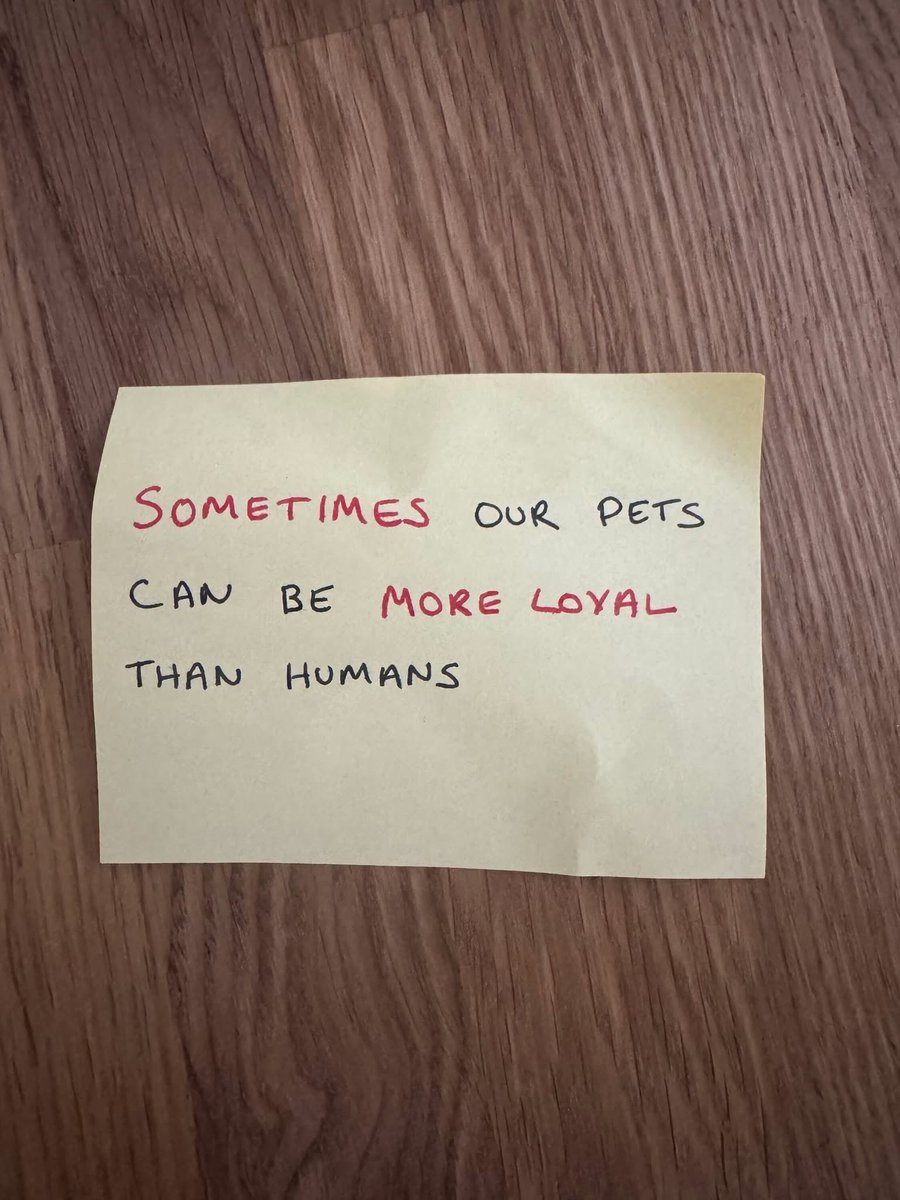 SOMETIMES OUR PETS
CAN BE MORE LOYAL
THAN HUMANS